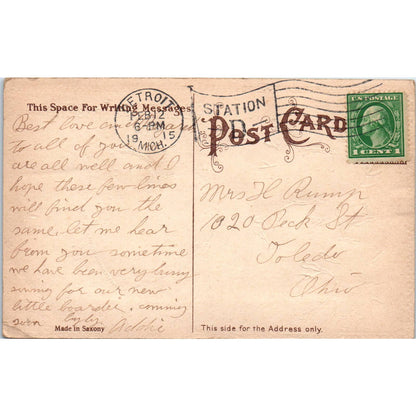 This Space For Writing Messages
DETROIT
FEB 12
6-PM
1915
MICH.
STATION
POST CARD
U.S. POSTAGE
1 CENT 1
Best love and
to all of you
are all well and I
hope these few lines
will find you the
same, let me hear
from you sometime
we have been very busy
sewing for our new
little boarder. coming
soon
Addie
Mrs H Rump
1020 Peck St
Toledo
Ohio
Made in Saxony
This side for the Address only.